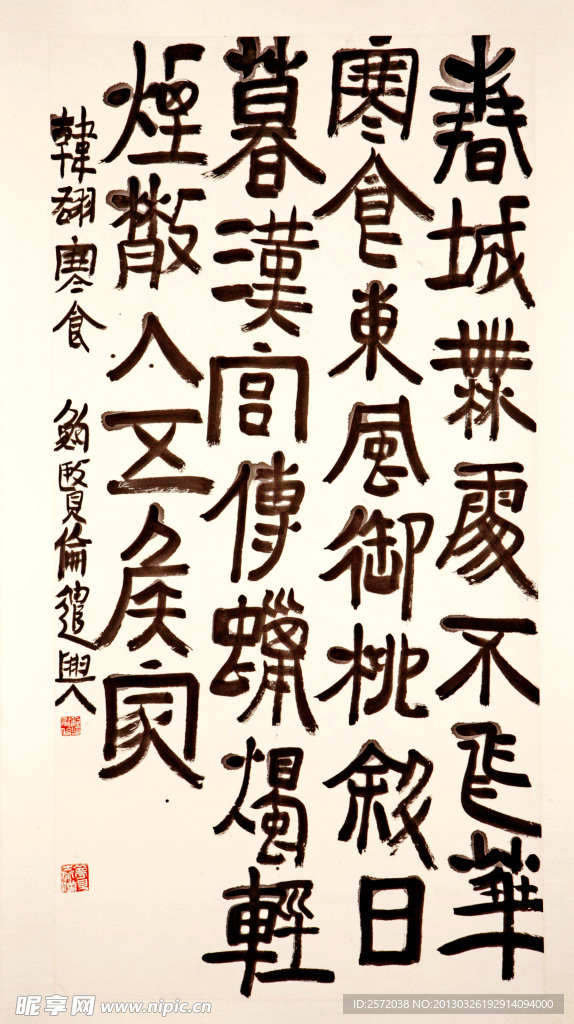 春城無處不飛華
寒食東風御柳斜日
暮漢宮傳蠟燭輕
煙散入五侯家
韓翃寒食 鮑賢倫遣興
昵享网 www.nipic.cn
ID:2572038 NO:20130326192914094000